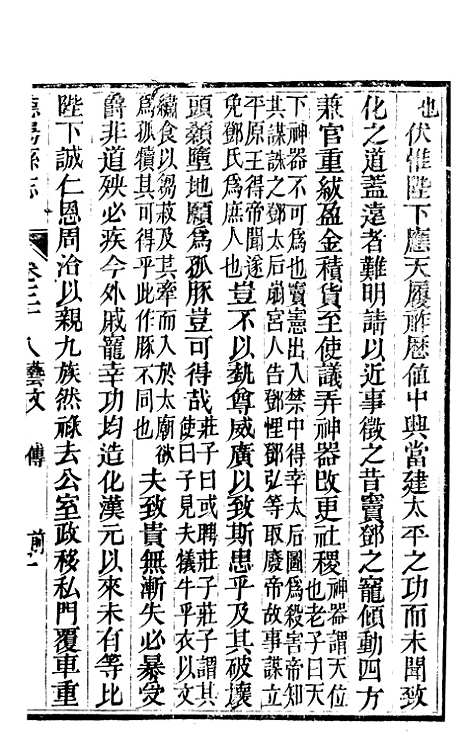 也伏惟陛下應天履祚歷值中興當建太平之功而未聞致
化之道蓋遠者難明請以近事徵之昔竇鄧之寵傾動四方
兼官重紱盈金積貨至使議弄神器改更社稷神器謂天位
也老子曰天
下神器不可爲也竇憲出入禁中得幸太后圖爲殺害帝知
其謀誅之鄧太后崩宮人告鄧悝鄧弘等取廢帝故事謀立
平原王得帝聞遂
免鄧氏爲庶人也豈不以埶尊威廣以致斯患乎及其破壞
頭顙墮地願爲孤豚豈可得哉莊子曰或聘莊子莊子謂其
使曰子見夫犧牛乎衣以文
繡食以芻菽及其牽而入於太廟欲
爲孤犢其可得乎此作豚不同也夫致貴無漸失必暴受
爵非道殃必疾今外戚寵幸功均造化漢元以來未有等比
陛下誠仁恩周洽以親九族然祿去公室政移私門覆車重
志 卷二十 人藝文 傳 前